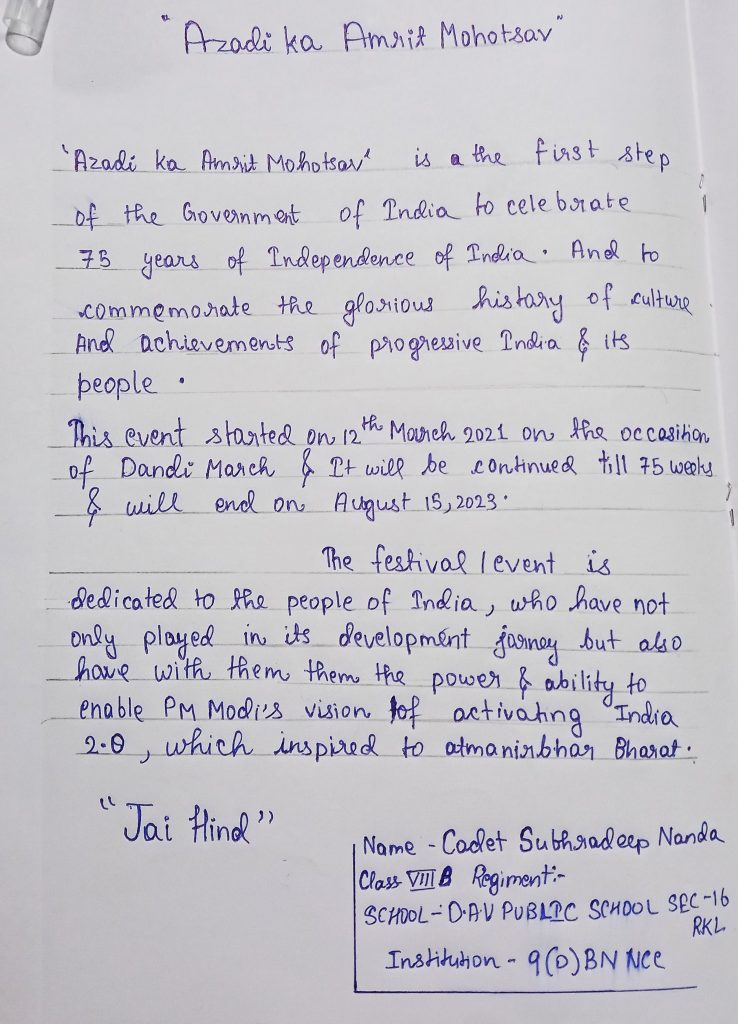 "Azadi ka Amrit Mohotsav"
"Azadi ka Amrit Mohotsav" is a the first step
of the Government of India to celebrate
75 years of Independence of India. And to
commemorate the glorious history of culture
And achievements of progressive India & its
people.
This event started on 12th March 2021 on the occasition
of Dandi March & It will be continued till 75 weeks
& will end on August 15, 2023.
The festival / event is
dedicated to the people of India, who have not
only played in its development jarney but also
have with them them the power & ability to
enable PM Modi's vision of activating India
2.0, which inspired to atmanirbhar Bharat.
"Jai Hind"
Name - Cadet Subhradeep Nanda
Class VIII B Regiment:-
SCHOOL - D.A.V PUBLIC SCHOOL SEC-16
RKL
Institution - 9(O) BN NCC